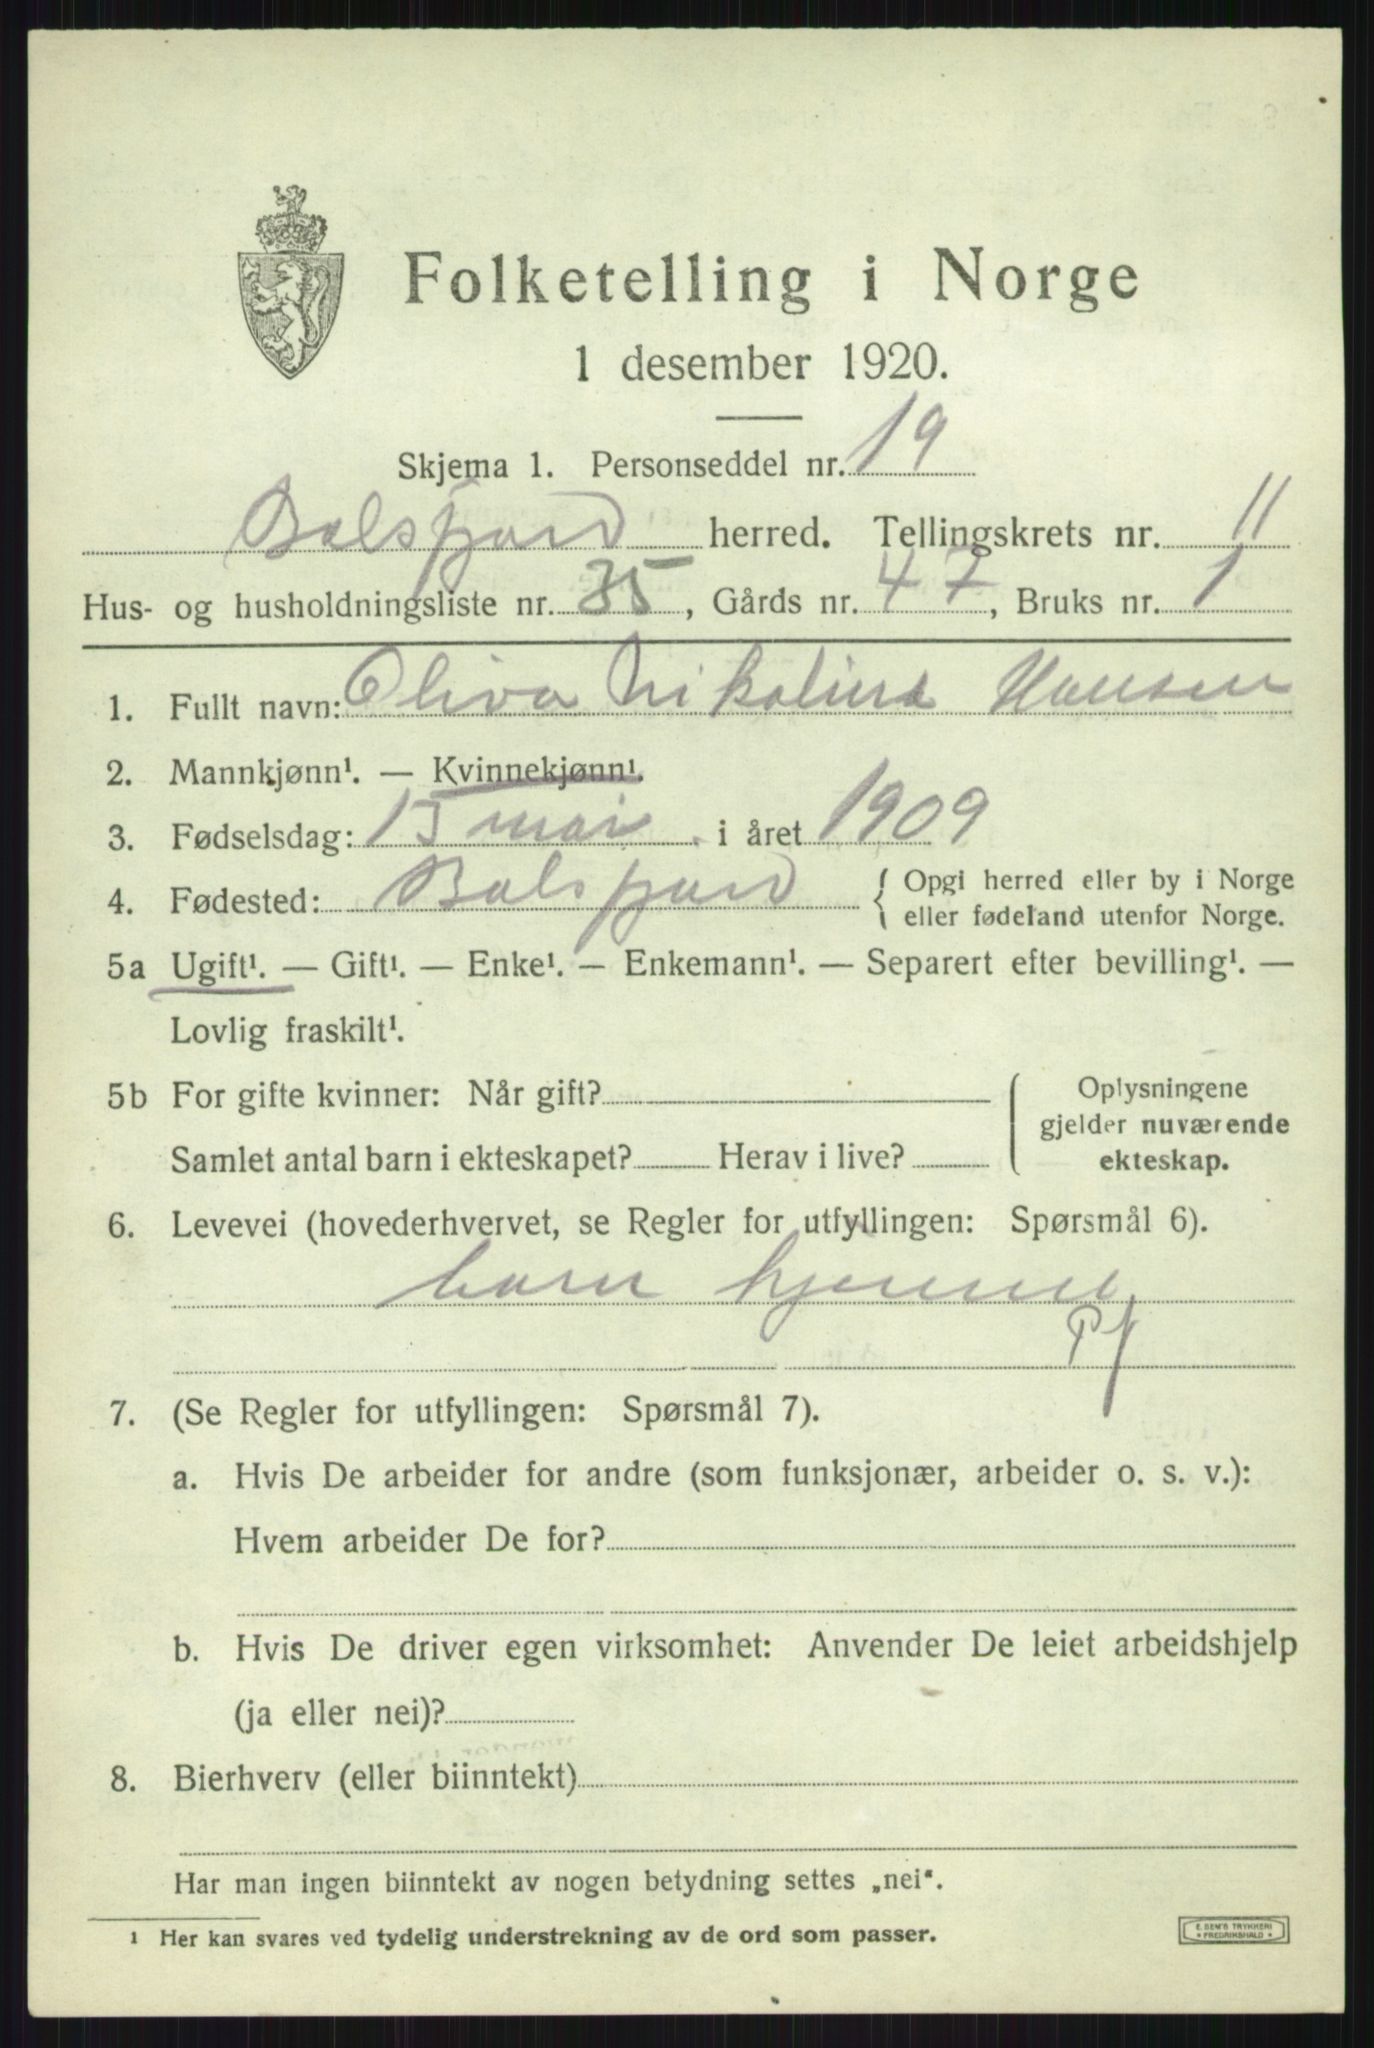 Folketelling i Norge
1 desember 1920.
Skjema 1. Personseddel nr. 19
Balsfjord herred. Tellingskrets nr. 11
Hus- og husholdningsliste nr. 35, Gårds nr. 47, Bruks nr. 1
1. Fullt navn: Oliva Nikolina Hansen
2. Mannkjønn¹. — Kvinnekjønn¹.
3. Fødselsdag: 15 mai i året 1909
4. Fødested: Balsfjord { Opgi herred eller by i Norge
eller fødeland utenfor Norge.
5a Ugift¹. — Gift¹. — Enke¹. — Enkemann¹. — Separert efter bevilling¹. —
Lovlig fraskilt¹.
5b For gifte kvinner: Når gift?
Samlet antal barn i ekteskapet? Herav i live?
Oplysningene
gjelder nuværende
ekteskap.
6. Levevei (hovederhvervet, se Regler for utfyllingen: Spørsmål 6).
barn hjemme
7. (Se Regler for utfyllingen: Spørsmål 7).
a. Hvis De arbeider for andre (som funksjonær, arbeider o. s. v.):
Hvem arbeider De for?
b. Hvis De driver egen virksomhet: Anvender De leiet arbeidshjelp
(ja eller nei)?
8. Bierhverv (eller biinntekt)
Har man ingen biinntekt av nogen betydning settes „nei“.
¹ Her kan svares ved tydelig understrekning av de ord som passer.
E. SEM'S TRYKKERI
FREDRIKSHALD